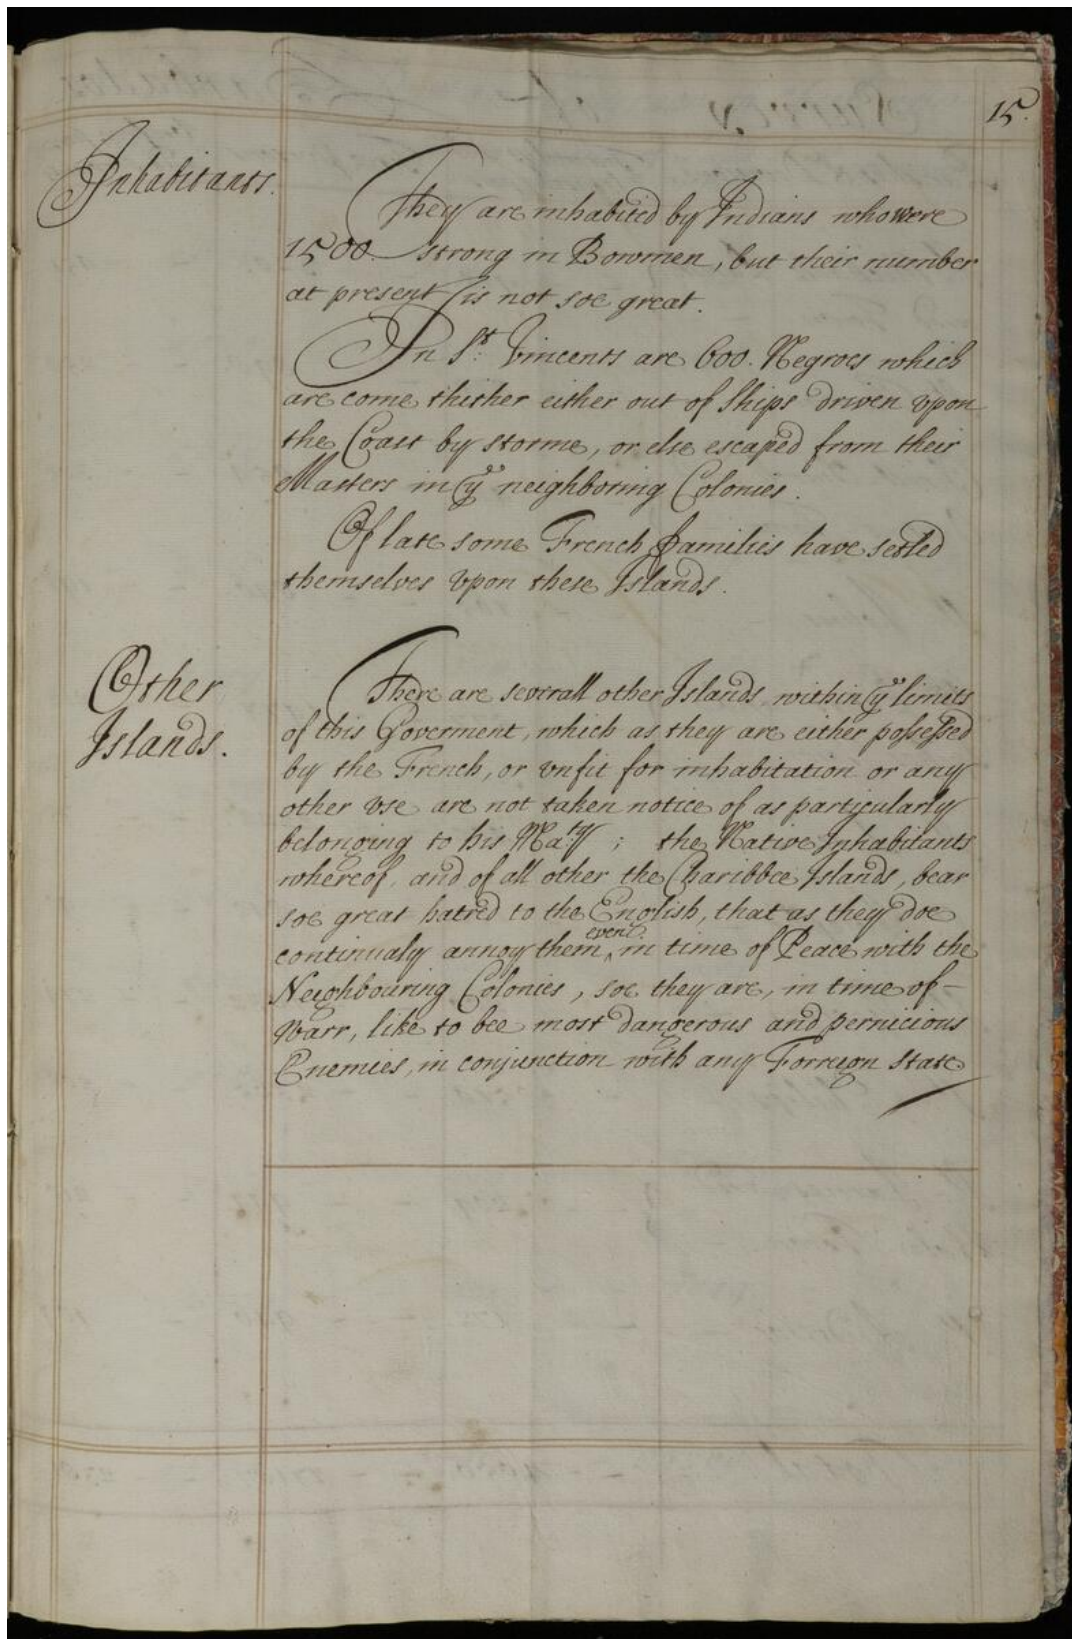 15.
Inhabitants.
They are inhabited by Indians who were
1500. strong in Bowmen, but their number
at present is not soe great.
In St. Vincents are 600. Negroes which
are come thither either out of Ships driven vpon
the Coast by storme, or else escaped from their
Masters in ye neighboring Colonies.
Of late some French families have setled
themselves vpon these Islands.
Other
Islands.
There are severall other Islands within ye limits
of this Goverment, which as they are either possessed
by the French, or vnfit for inhabitation or any
other vse are not taken notice of as particularly
belonging to his Maty; the Native Inhabitants
whereof, and of all other the Charibbee Islands, bear
soe great hatred to the English, that as they doe
continualy annoy them even in time of Peace with the
Neighbouring Colonies, soe they are, in time of -
Warr, like to bee most dangerous and pernicious
Enemies, in conjunction with any Forreign state